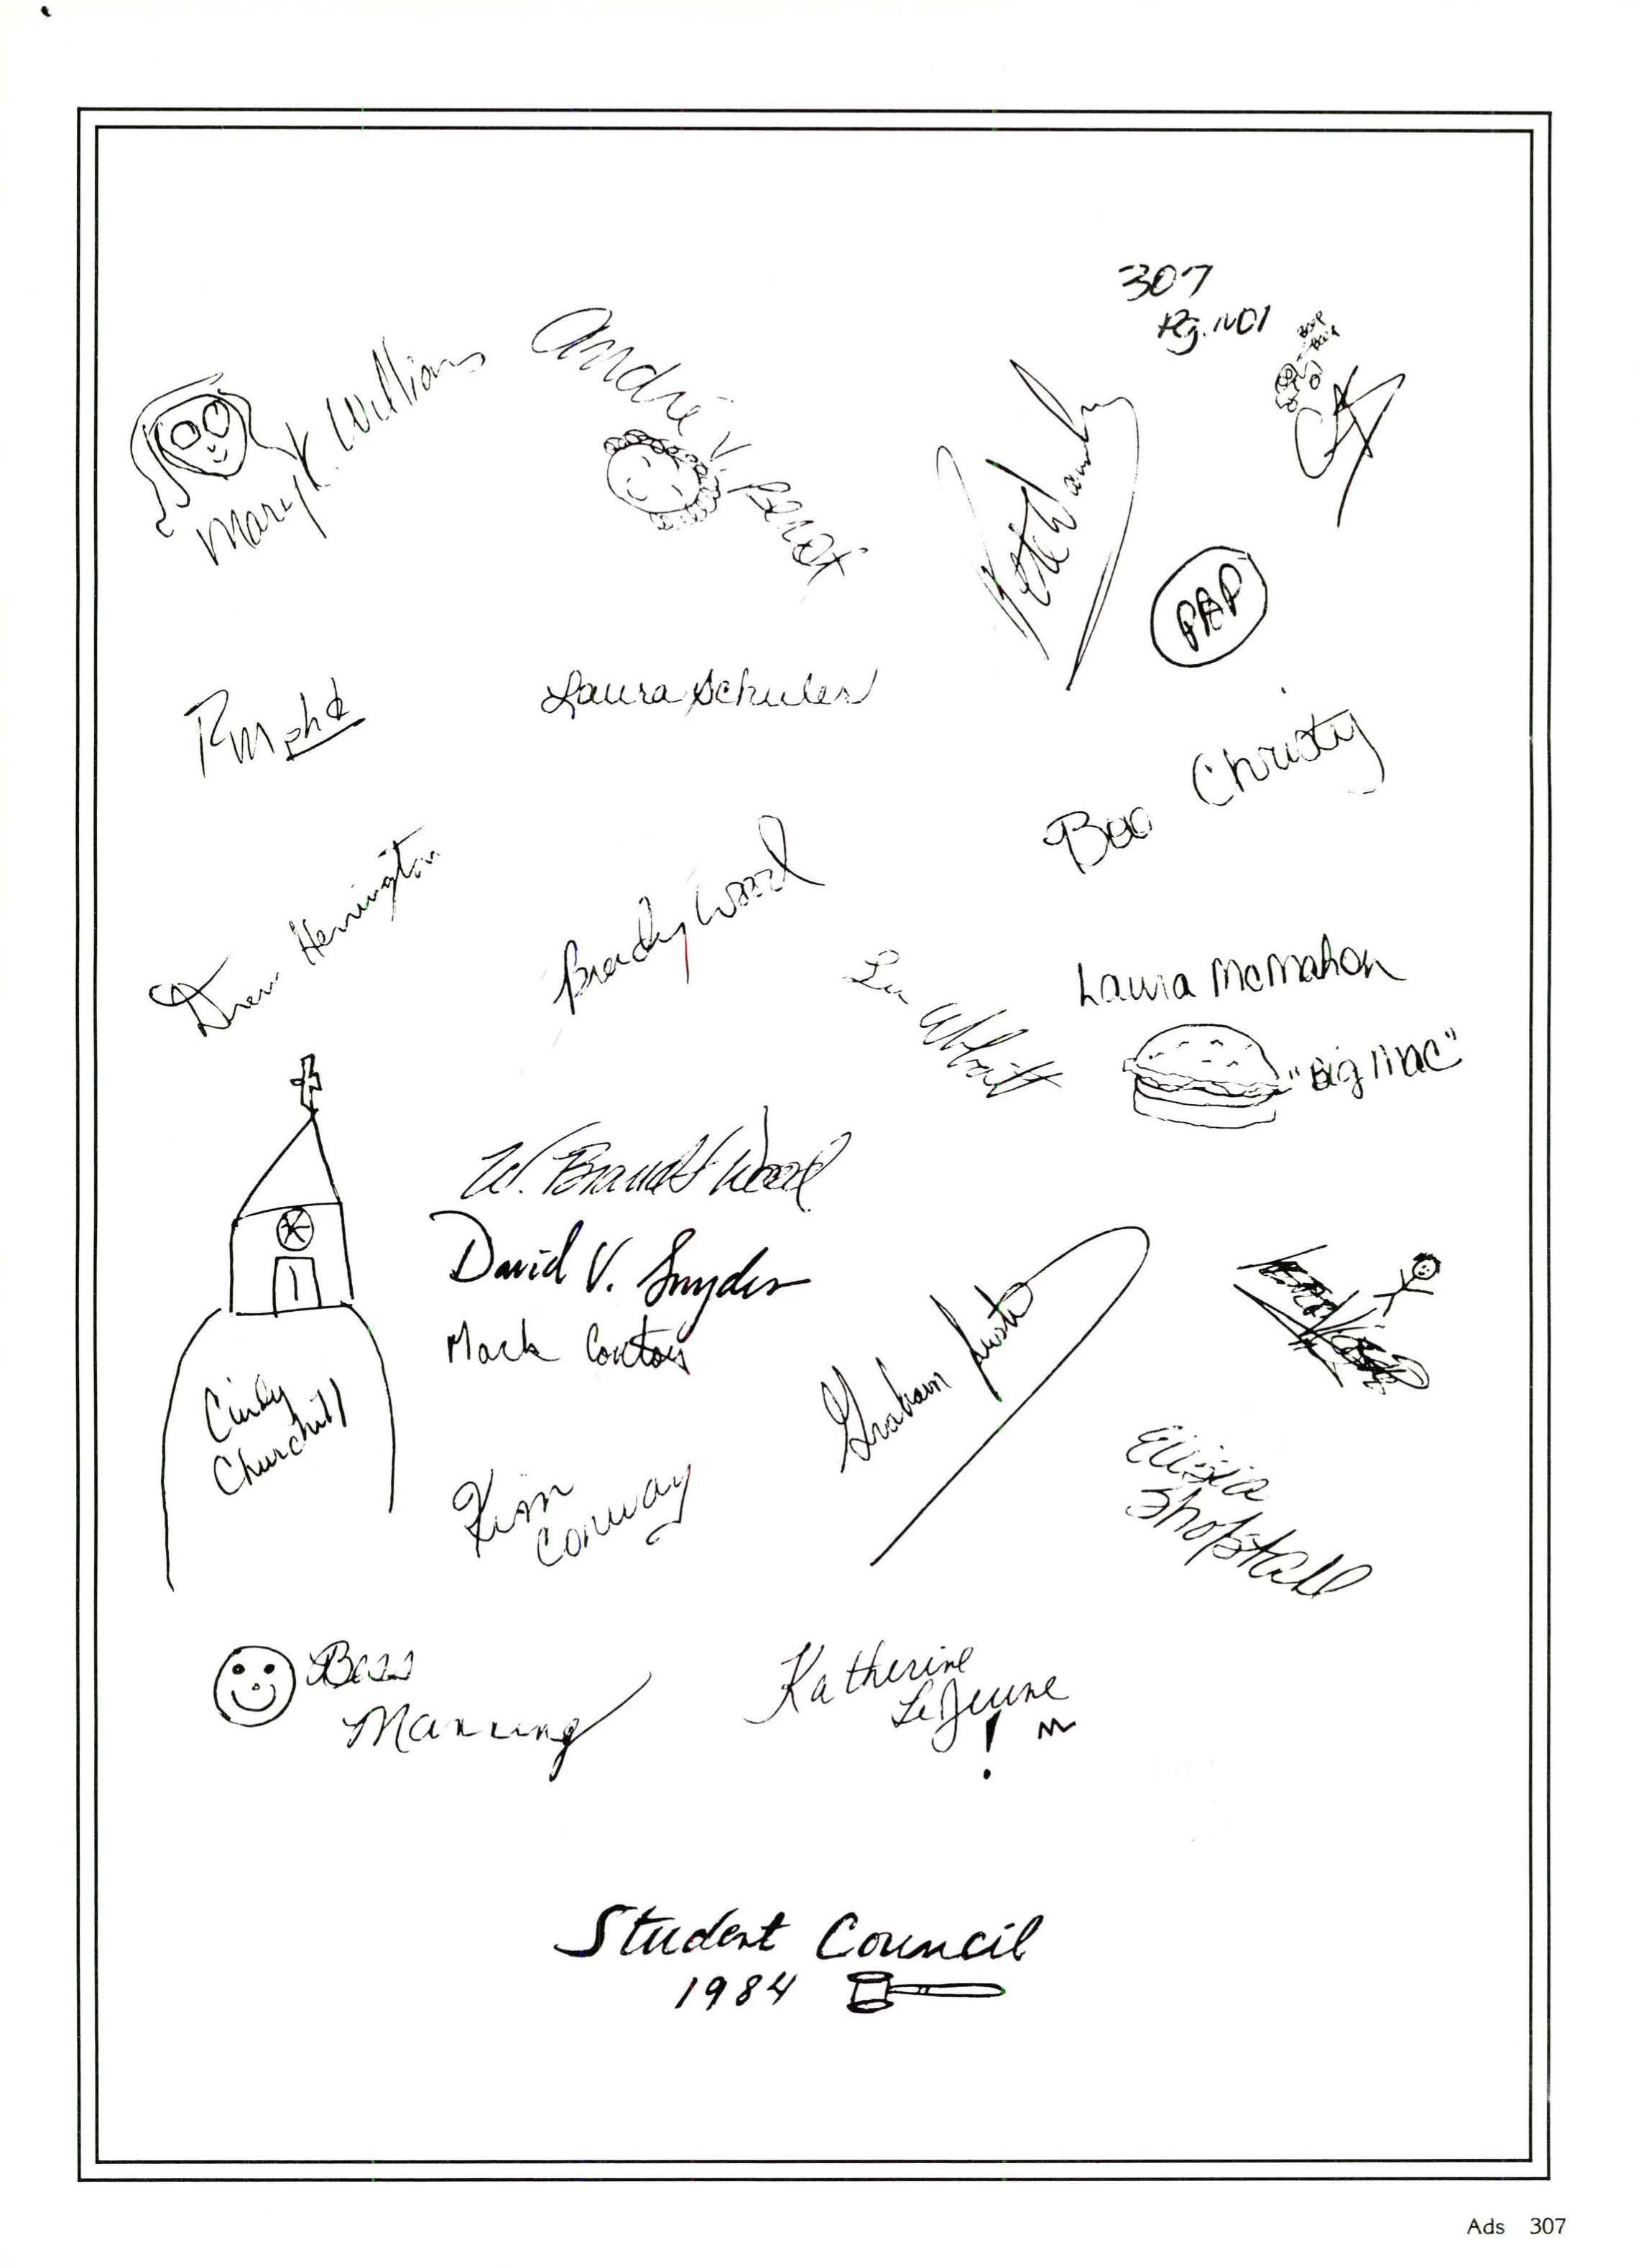 307
Pg. No!
Mary K. Williams
André V. Benoit
PAP
Laura Schuler
Boo Christy
Drew Herrington
Brady Wood
Laura McMahon
"Big Mac"
W. Brandt Wood
David V. Snyder
Mark Contois
Cindy
Churchill
Graham
Kim
Conway
Elisia
Bess
Manning
Katherine
LeJeune
!
Student Council
1984
Ads 307